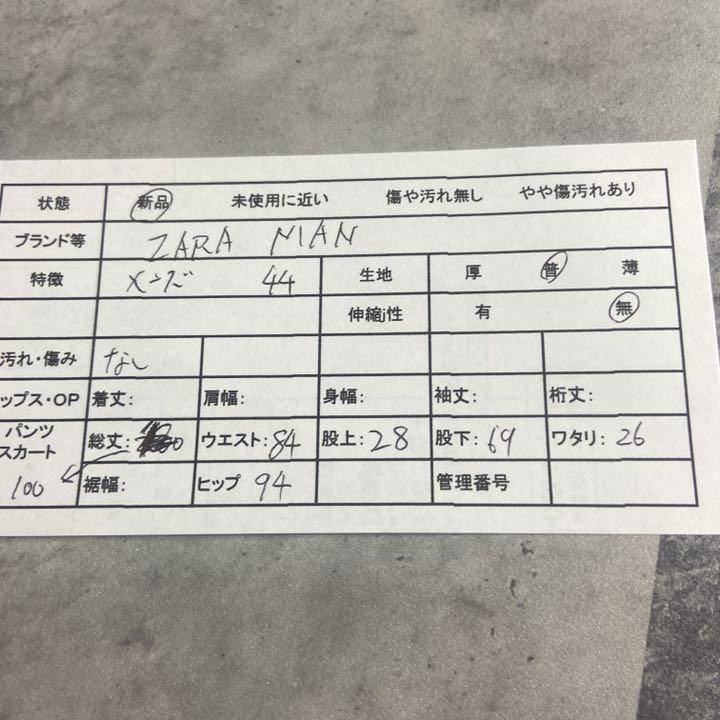 状態 新品 未使用に近い 傷や汚れ無し やや傷汚れあり
ブランド等 ZARA MAN
特徴 メンズ 44 生地 厚 普 薄
伸縮j性 有 無
汚れ・傷み なし
ップス・OP 着丈: 肩幅: 身幅: 袖丈: 裄丈:
パンツ
スカート 総丈: ウエスト: 84 股上: 28 股下: 69 ワタリ: 26
100 裾幅: ヒップ 94 管理番号